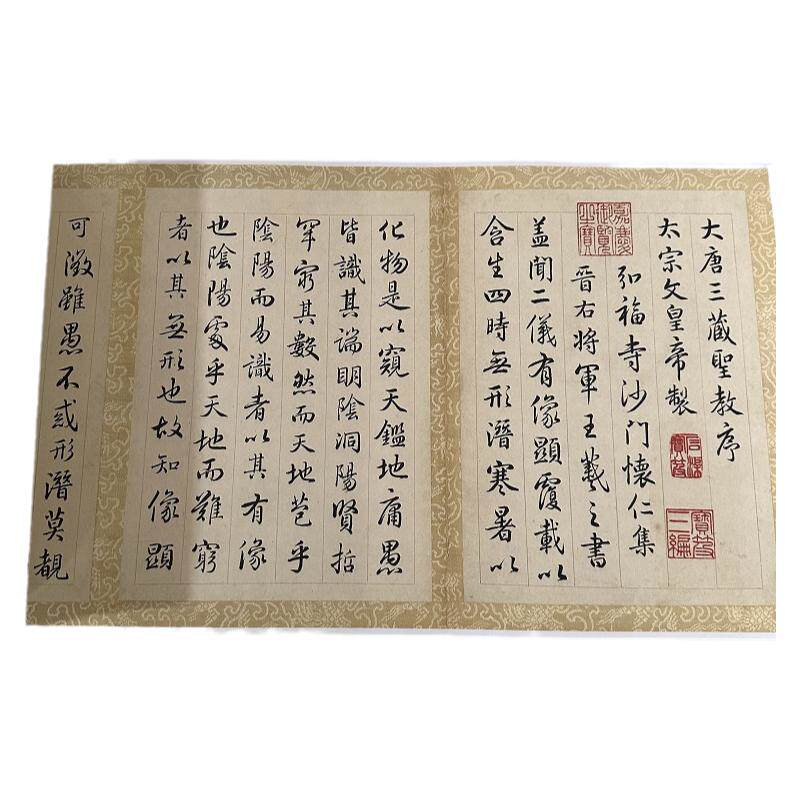 大唐三藏聖教序
太宗文皇帝製
弘福寺沙门懷仁集
晉右将軍王羲之書
盖聞二儀有像顯覆載以
含生四時無形潛寒暑以
化物是以窺天鑑地庸愚
皆識其端明陰洞陽賢哲
罕窮其數然而天地苞乎
陰陽而易識者以其有像
也陰陽處乎天地而難窮
者以其無形也故知像顯
可徵雖愚不惑形潛莫覩
嘉慶御覽之寶
石渠寶笈
寶笈三編